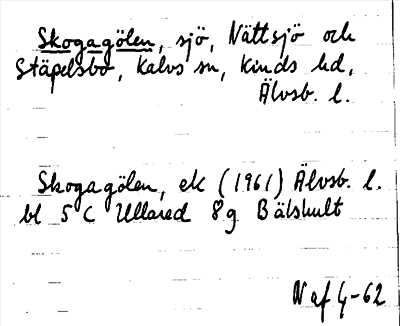 Skogagölen, sjö, Nättsjö och
Stäpelsbo, Kalvs sn, Kinds hd,
Älvsb. l.
Skogagölen, ek (1961) Älvsb. l.
bl 5 C Ullared 8g Bälshult
N af 4-62